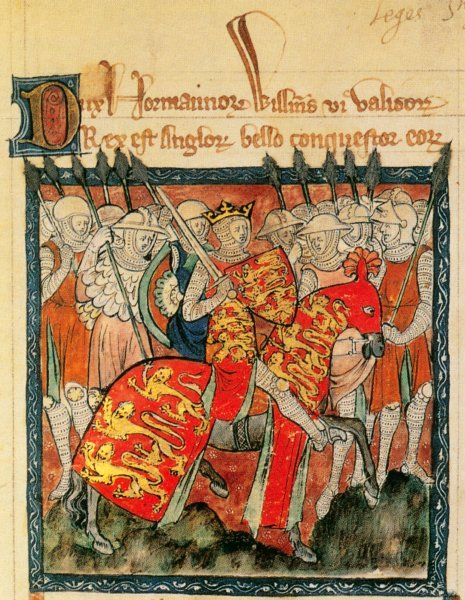 Leges
Dux Normannor Willms vi validor
Rex est Anglor bello conquestor eor